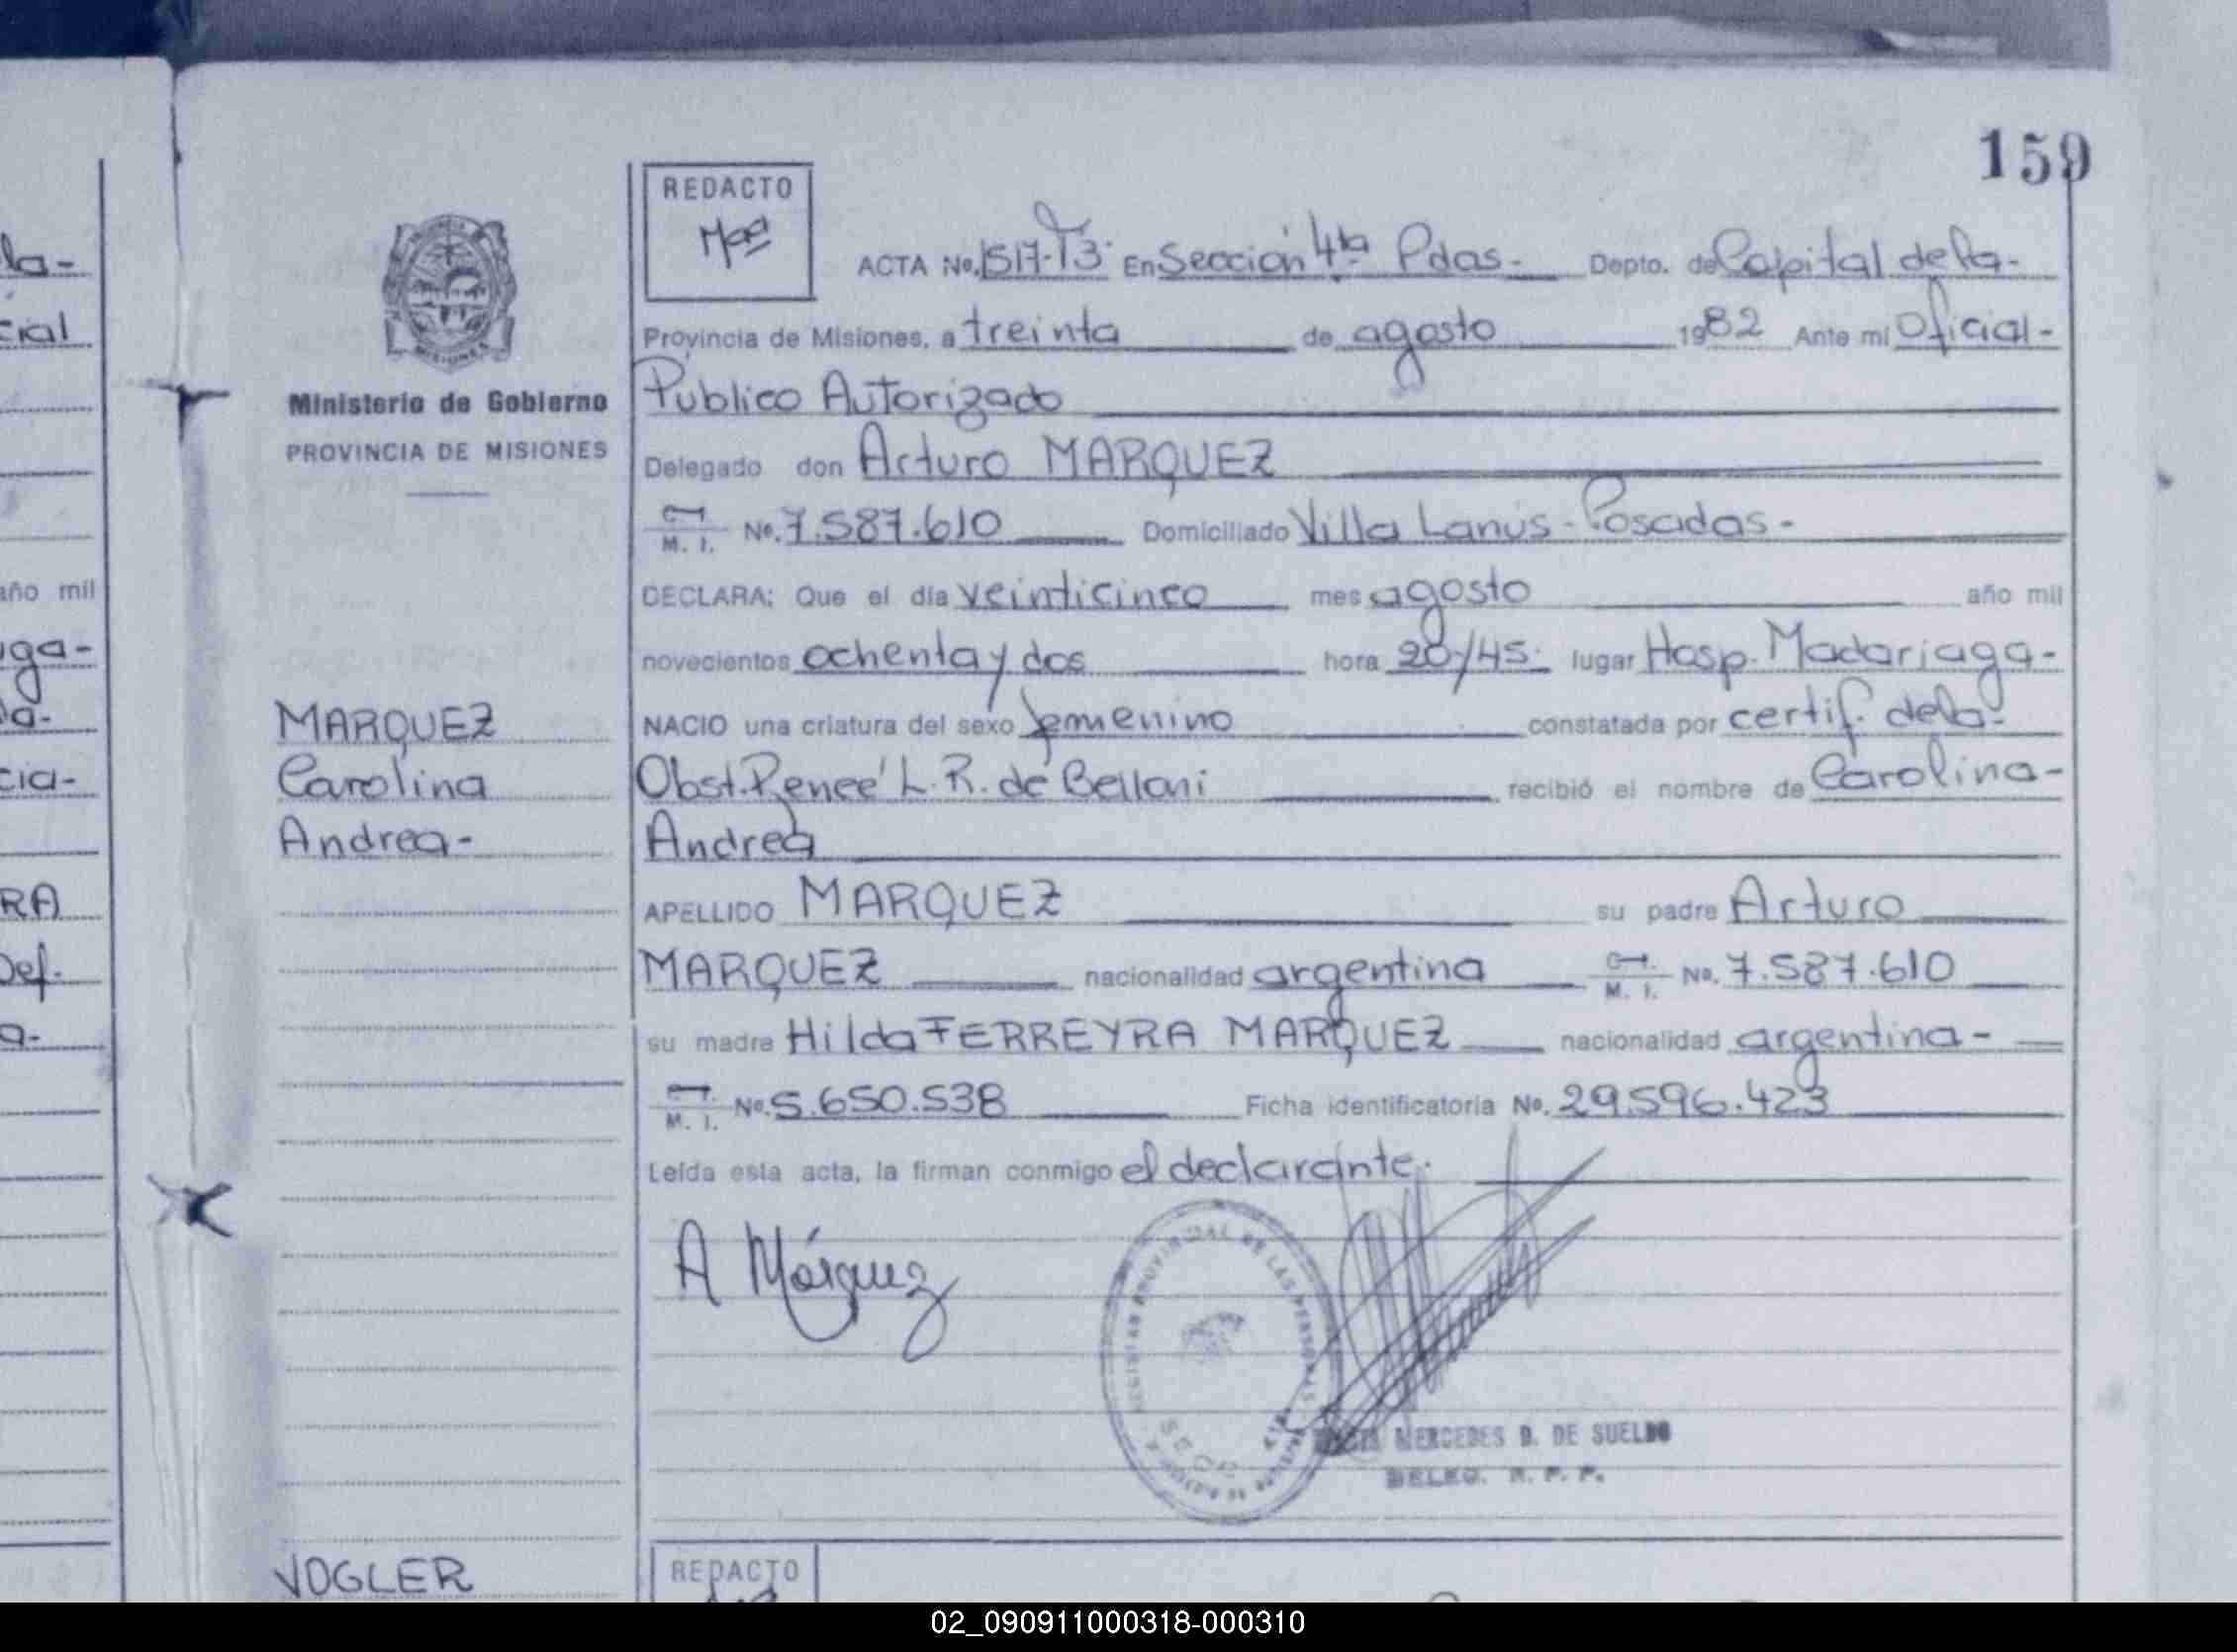 159
la-
cial
año mil
uga-
la-
cia-
RA
Def.
a-
MISIONES
Ministerio de Gobierno
PROVINCIA DE MISIONES
MARQUEZ
Carolina
Andrea-
REDACTO
ACTA No. 1517-T3- En Sección 4ta Pdas.- Depto. de Capital de la-
Provincia de Misiones, a treinta de agosto 1982 Ante mi Oficial-
Público Autorizado
Delegado don Arturo MARQUEZ
M. I. No. 7.587.610 Domiciliado Villa Lanús - Posadas -
DECLARA: Que el día veinticinco mes agosto año mil
novecientos ochenta y dos hora 20/45- lugar Hosp. Madariaga-
NACIO una criatura del sexo femenino constatada por certif. de la-
Obst. Reneé L. R. de Bellani recibió el nombre de Carolina-
Andrea
APELLIDO MARQUEZ su padre Arturo
MARQUEZ nacionalidad argentina M. I. No. 7.587.610
su madre Hilda FERREYRA MARQUEZ nacionalidad argentina -
M. I. No. 5.650.538 Ficha identificatoria No. 29.596.423
Leída esta acta, la firman conmigo el declarante.
A Márquez
PROVINCIAL DE LAS PERSONAS
MERCEDES B. DE SUELDO
DELEG. R. P. P.
VOGLER
REDACTO
02_090911000318-000310